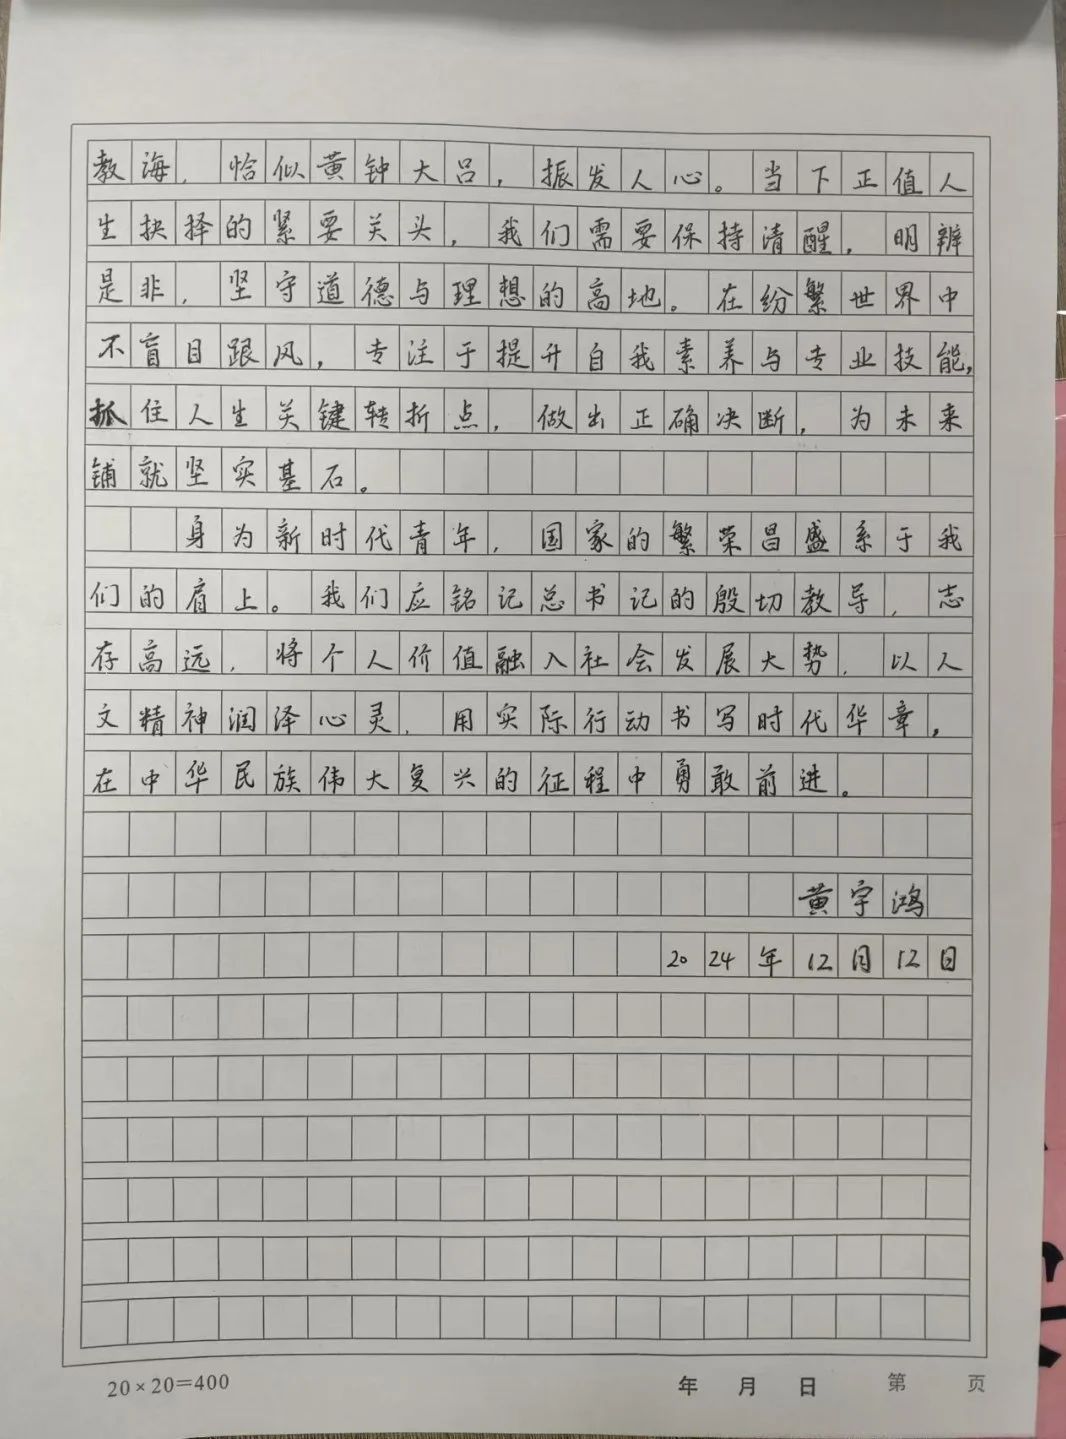 教海，恰似黄钟大吕，振发人心。当下正值人
生抉择的紧要关头，我们需要保持清醒，明辨
是非，坚守道德与理想的高地。在纷繁世界中
不盲目跟风，专注于提升自我素养与专业技能，
抓住人生关键转折点，做出正确决断，为未来
铺就坚实基石。
身为新时代青年，国家的繁荣昌盛系于我
们的肩上。我们应铭记总书记的殷切教导，志
存高远，将个人价值融入社会发展大势，以人
文精神润泽心灵，用实际行动书写时代华章，
在中华民族伟大复兴的征程中勇敢前进。
黄宇鸿
2024年12月12日
20×20=400 年 月 日 第 页